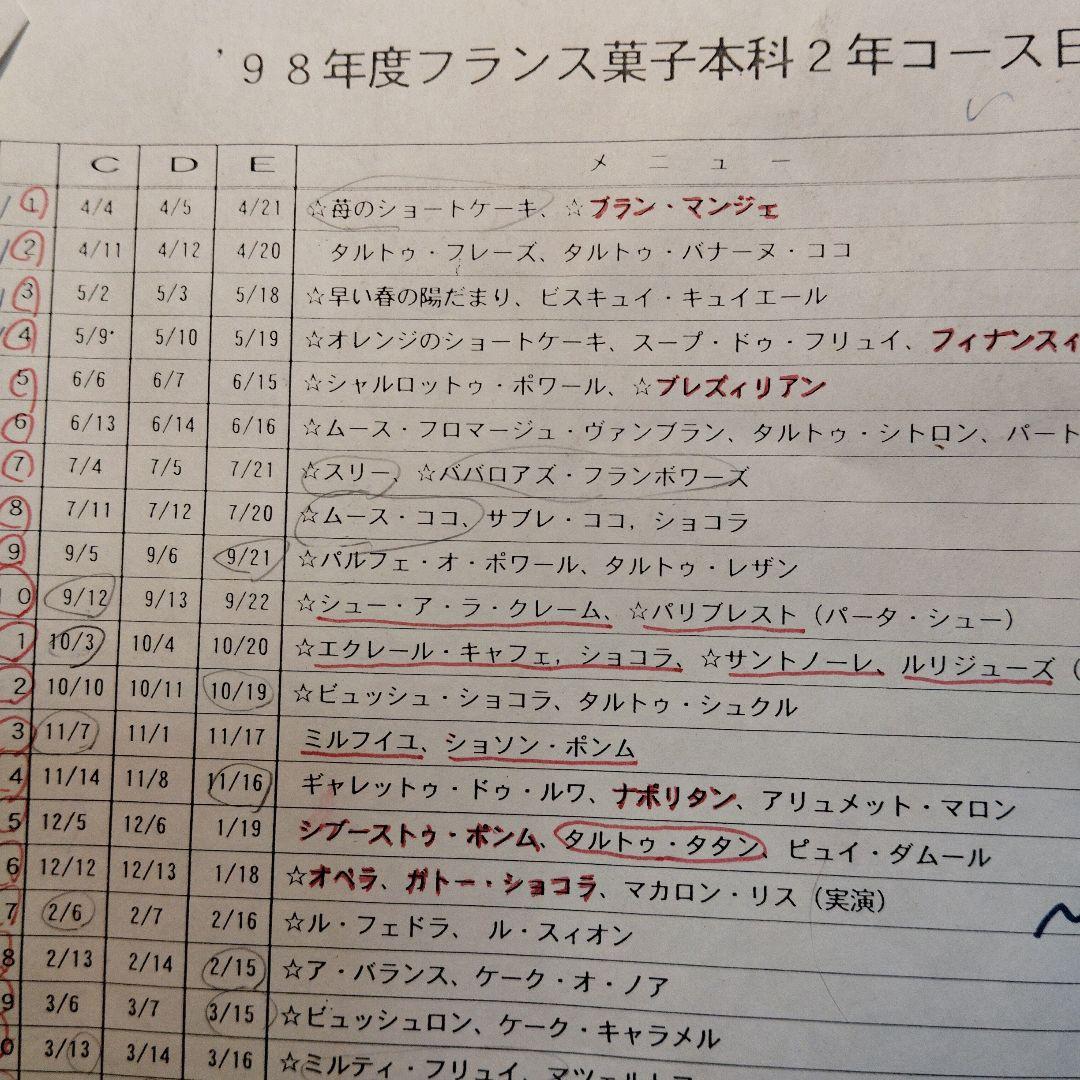 '98年度フランス菓子本科2年コース日
C D E メニュー
1 4/4 4/5 4/21 ☆苺のショートケーキ、☆ブラン・マンジェ
2 4/11 4/12 4/20 タルトゥ・フレーズ、タルトゥ・バナーヌ・ココ
3 5/2 5/3 5/18 ☆早い春の陽だまり、ビスキュイ・キュイエール
4 5/9 5/10 5/19 ☆オレンジのショートケーキ、スープ・ドゥ・フリュイ、フィナンスィ
5 6/6 6/7 6/15 ☆シャルロットゥ・ポワール、☆ブレズィリアン
6 6/13 6/14 6/16 ☆ムース・フロマージュ・ヴァンブラン、タルトゥ・シトロン、パート
7 7/4 7/5 7/21 ☆スリー、☆ババロアズ・フランボワーズ
8 7/11 7/12 7/20 ☆ムース・ココ、サブレ・ココ，ショコラ
9 9/5 9/6 9/21 ☆パルフェ・オ・ポワール、タルトゥ・レザン
10 9/12 9/13 9/22 ☆シュー・ア・ラ・クレーム、☆パリブレスト（パータ・シュー）
1 10/3 10/4 10/20 ☆エクレール・キャフェ，ショコラ、☆サントノーレ、ルリジューズ（
2 10/10 10/11 10/19 ☆ビュッシュ・ショコラ、タルトゥ・シュクル
3 11/7 11/1 11/17 ミルフイユ、ショソン・ポンム
4 11/14 11/8 11/16 ギャレットゥ・ドゥ・ルワ、ナポリタン、アリュメット・マロン
5 12/5 12/6 1/19 シブーストゥ・ポンム、タルトゥ・タタン、ピュイ・ダムール
6 12/12 12/13 1/18 ☆オペラ、ガトー・ショコラ、マカロン・リス（実演）
7 2/6 2/7 2/16 ☆ル・フェドラ、ル・スィオン
8 2/13 2/14 2/15 ☆ア・バランス、ケーク・オ・ノア
9 3/6 3/7 3/15 ☆ビュッシュロン、ケーク・キャラメル
0 3/13 3/14 3/16 ☆ミルティ・フリュイ、